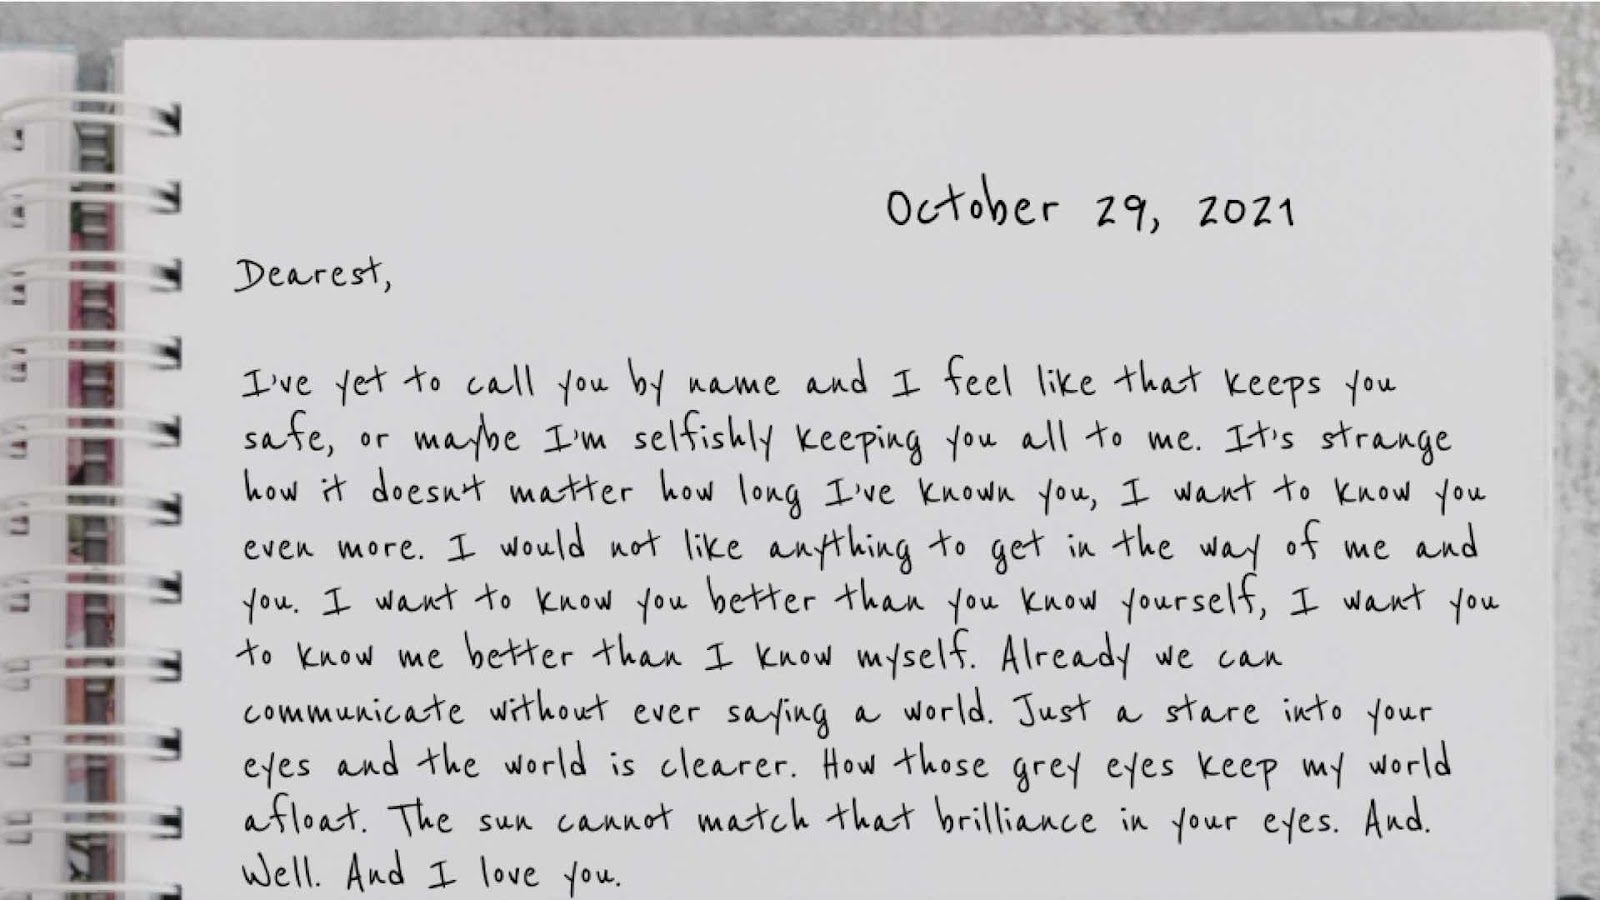 October 29, 2021
Dearest,
I've yet to call you by name and I feel like that keeps you
safe, or maybe I'm selfishly keeping you all to me. It's strange
how it doesn't matter how long I've known you, I want to know you
even more. I would not like anything to get in the way of me and
you. I want to know you better than you know yourself, I want you
to know me better than I know myself. Already we can
communicate without ever saying a world. Just a stare into your
eyes and the world is clearer. How those grey eyes keep my world
afloat. The sun cannot match that brilliance in your eyes. And.
Well. And I love you.